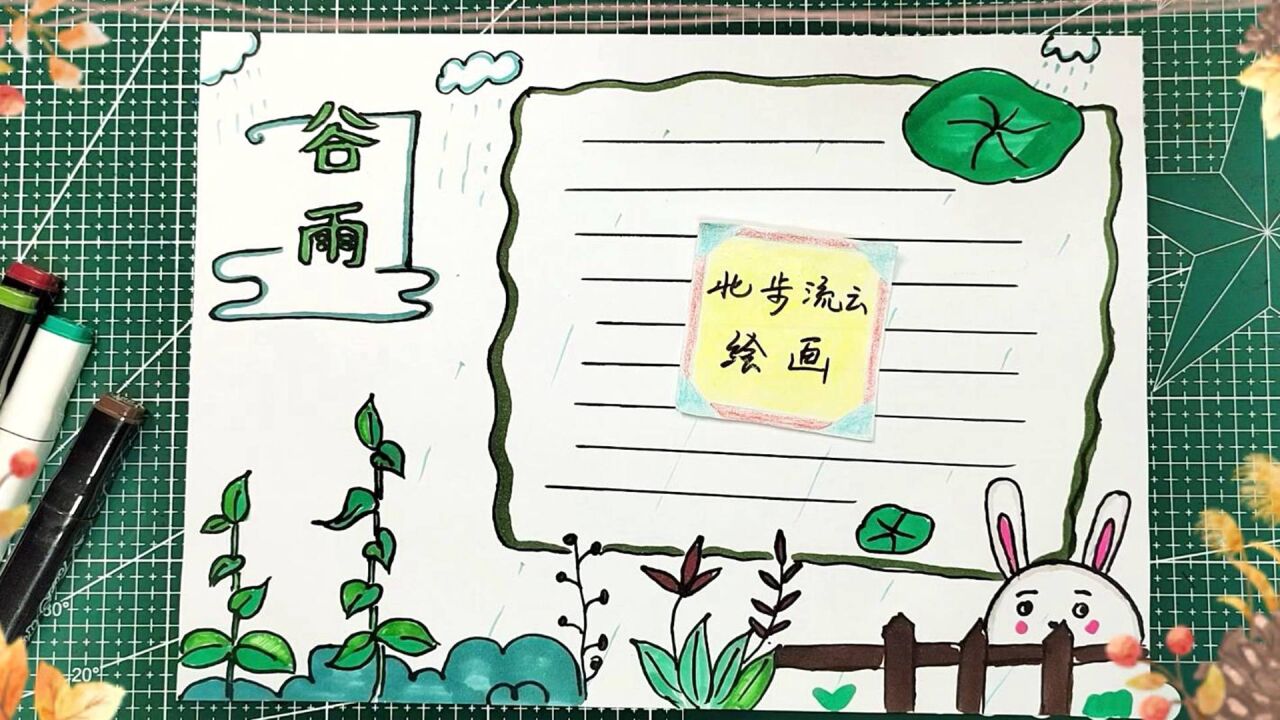 谷
雨
北步流云
绘画
30°
20°